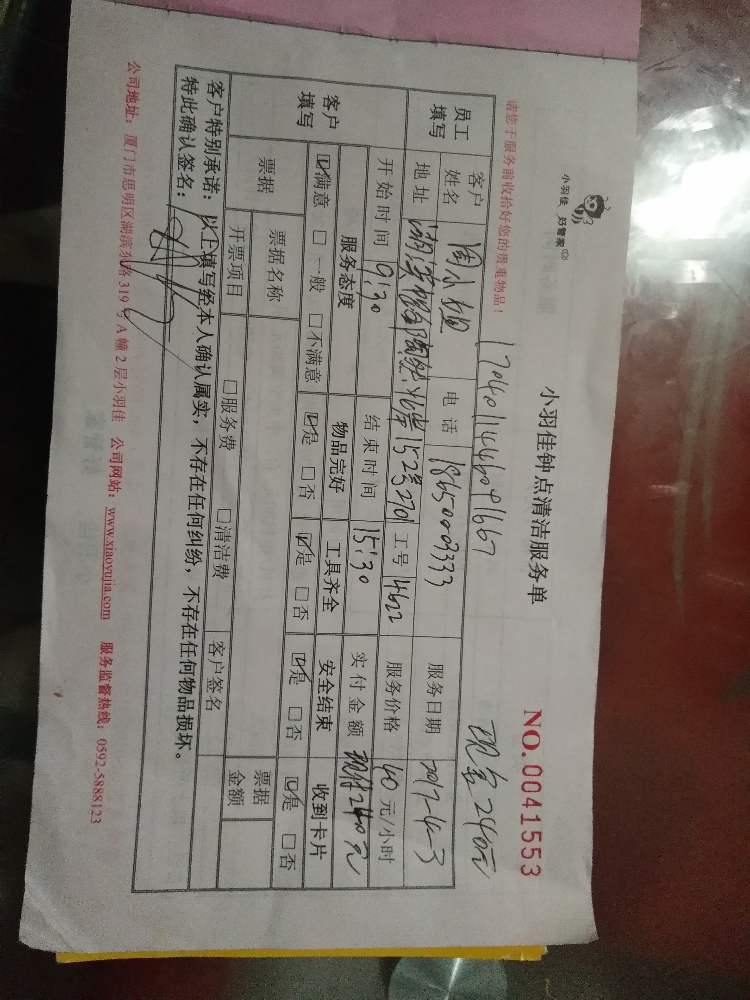 小羽佳 好管家
小羽佳钟点清洁服务单
NO.0041553
请您于服务前收拾好您的贵重物品！
17040114460091667
现金240元
员工填写
客户姓名 周小姐 电话 18650003333 服务日期 2017-4-3
地址 152号2701 工号 14622 服务价格 40元/小时
客户填写
开始时间 9:30 结束时间 15:30 实付金额 现付240元
服务态度 物品完好 工具齐全 安全结束 收到卡片
☑满意 □一般 □不满意 ☑是 □否 ☑是 □否 ☑是 □否 ☑是 □否
票据 票据名称 票据金额
开票项目 □服务费 □清洁费 客户签名
客户特别承诺：以上填写经本人确认属实，不存在任何纠纷，不存在任何物品损坏。
特此确认签名：
公司地址：厦门市思明区湖滨东路319号A幢2层小羽佳 公司网站：www.xiaoyujia.com 服务监督热线：0592-5888123